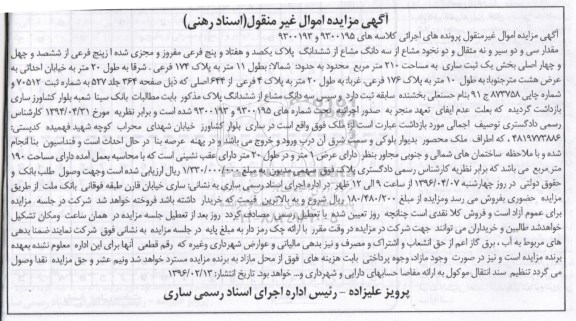 آگهی مزایده اموال غیر منقول(اسناد رهنی)
آگهی مزایده اموال غیرمنقول پرونده های اجرائی کلاسه های ۹۳۰۰۱۹۵ و ۹۳۰۰۱۹۳
مقدار سی و دو سیر و نه مثقال و دو نخود مشاع از سه دانگ مشاع از ششدانگ پلاک یکصد و هفتاد و پنج فرعی مفروز و مجزی شده از پنج فرعی از ششصد و چهل
و چهار اصلی بخش یک ثبت ساری به مساحت ۲۱۰ متر مربع محدود به حدود: شمالا: بطول ۱۱ متر به پلاک ۱۷۴ فرعی . شرقا به طول ۲۰ متر به خیابان احداثی به
عرض هشت مترجنوبا: به طول ۱۰ متر به پلاک ۱۷۶ فرعی. غربا: به طول ۲۰ متر به پلاک ۴ فرعی از ۶۴۴ اصلی که ذیل صفحه ۳۶۴ جلد ۵۲۷ به شماره ثبت ۷۰۵۱۲ و
شماره چاپی ۸۷۳۷۵۸ ج ۹۱ بنام حسنعلی بخشنده سابقه ثبت دارد و سپس سه دانگ مشاع از ششدانگ پلاک مذکور بابت مطالبات بانک سینا شعبه بلوار کشاورز ساری
بازداشت گردیده که بعلت عدم ایفای تعهد منجر به صدور اجرائیه تحت شماره های ۹۳۰۰۱۹۵ و ۹۳۰۰۱۹۳ شده است و برابر نظریه مورخ ۱۳۹۴/۰۴/۳۱ کارشناس
رسمی دادگستری توصیف اجمالی مورد بازداشت عبارت است از: ملک فوق واقع است در ساری بلوار کشاورز خیابان شهدای محراب کوچه شهید فهمیده کدپستی:
۴۸۱۹۷۷۳۸۸۶ ، که اطراف ملک محصور بدیوار بلوکی و سمت شرق آن درب ورود و خروج می باشد و در پهنه عرصه بنا در حال احداث است و فنداسیون بنا انجام
شده و با ملاحظه ساختمان های شمالی و جنوبی مجاور بنظر دارای عرض ۱ متر و در طول ۲۰ متر دارای عقب نشینی است که با محاسبه بعمل آمده دارای مساحت ۱۹۰
متر مربع می باشد که برابر نظریه کارشناس رسمی دادگستری پلاک فوق سهمی مدیون به مبلغ ۱/۳۳۰/۰۰۰/۰۰ ریال ارزیابی شده است وجهت وصول طلب بانک و
حقوق دولتی در روز چهارشنبه ۱۳۹۶/۰۴/۰۷ از ساعت ۹ الی ۱۲ ظهر در اداره اجرای اسناد رسمی ساری به نشانی: ساری خیابان قارن طبقه فوقانی بانک ملت از طریق
مزایده حضوری بفروش می رسد ومزایده از مبلغ ۱۸۰/۴۸۰/۲۰۰ ریال شروع و به بالاترین قیمت که خریدار داشته باشد فروخته خواهد شد شرکت در جلسه مزایده
برای عموم آزاد است و فروش کلا نقدی است چنانچه روز تعیین شده با تعطیلی رسمی مصادف گردد روز بعد از تعطیل جلسه مزایده در همان ساعت ومکان تشکیل
خواهدشد طالبین و خریداران می توانند جهت شرکت در مزایده در وقت مقرر با ارائه چک رمز دار به مبلغ پایه در جلسه مزایده به نشانی فوق شرکت نمایند ضمنا بدهی
های مربوط به آب ، برق گاز اعم از حق انشعاب و اشتراک و مصرف و نیز بدهی مالیاتی و عوارض شهرداری وغیره که رقم قطعی آنها برای این اداره معلوم نشده بعهده
برنده مزایده است و نیز در صورت وجود مازاد، وجوه پرداختی بابت هزینه های فوق از محل مازاد به برنده مزایده مسترد خواهد شد ونیم عشر و حق مزایده نقدا وصول
می گردد تنظیم سند انتقال موکول به ارائه مفاصا حسابهای دارایی و شهرداری و... خواهد بود. تاریخ انتشار: ۱۳۹۶/۰۲/۱۳
پرویز علیزاده - رئیس اداره اجرای اسناد رسمی ساری